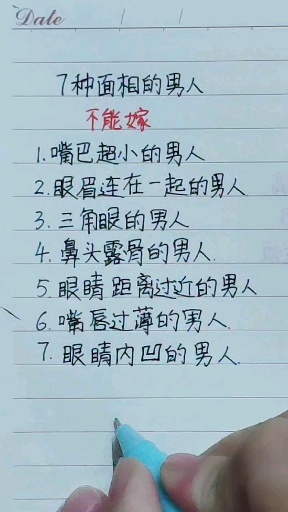 Date
7种面相的男人
不能嫁
1.嘴巴超小的男人
2.眼眉连在一起的男人
3.三角眼的男人
4.鼻头露骨的男人.
5.眼睛距离过近的男人
6.嘴唇过薄的男人.
7.眼睛内凹的男人.